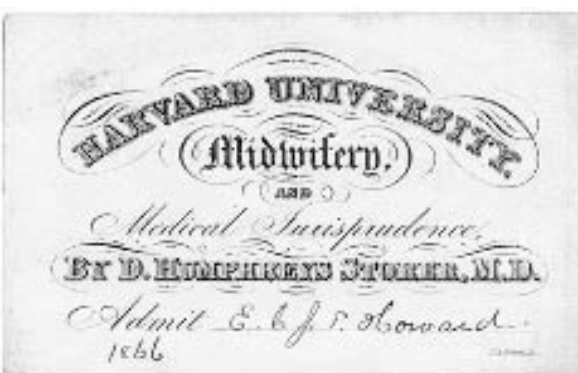 HARVARD UNIVERSITY.
Midwifery,
AND
Medical Jurisprudence,
BY D. HUMPHREYS STORER, M.D.
Admit E. C. J. T. Howard.
1866